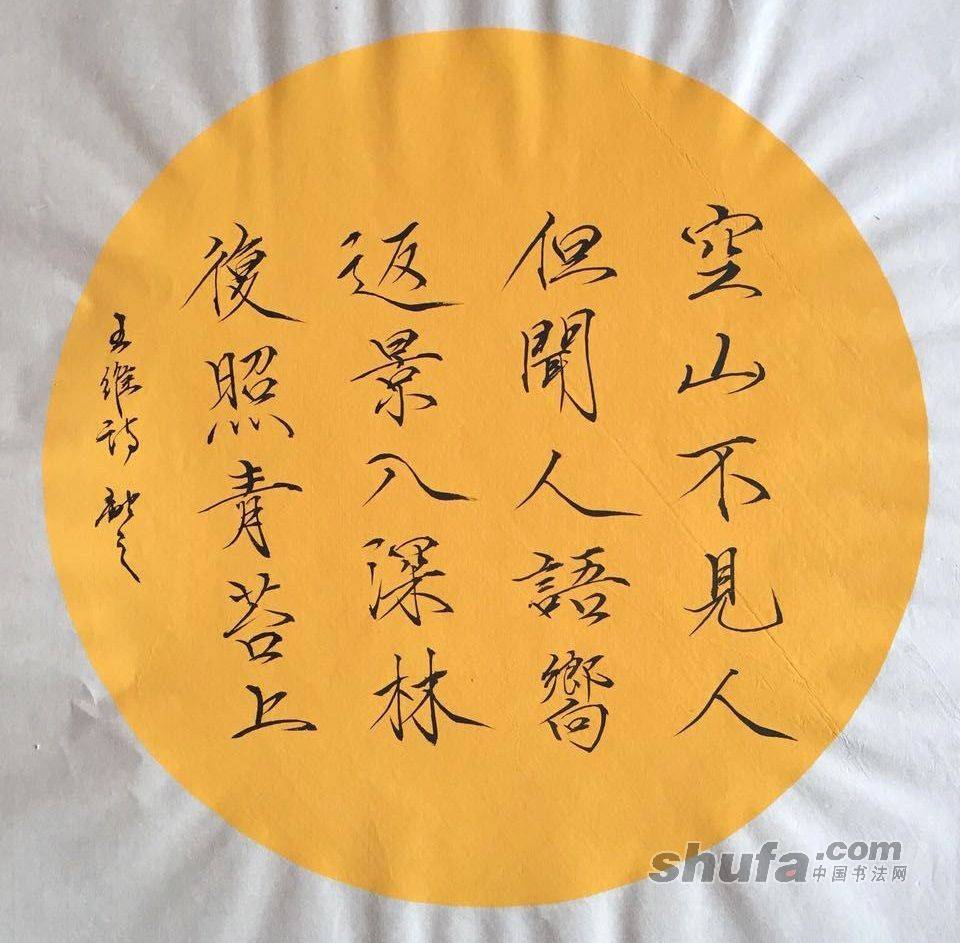 空山不見人
但聞人語嚮
返景入深林
復照青苔上
王維詩
shufa.com
中国书法网